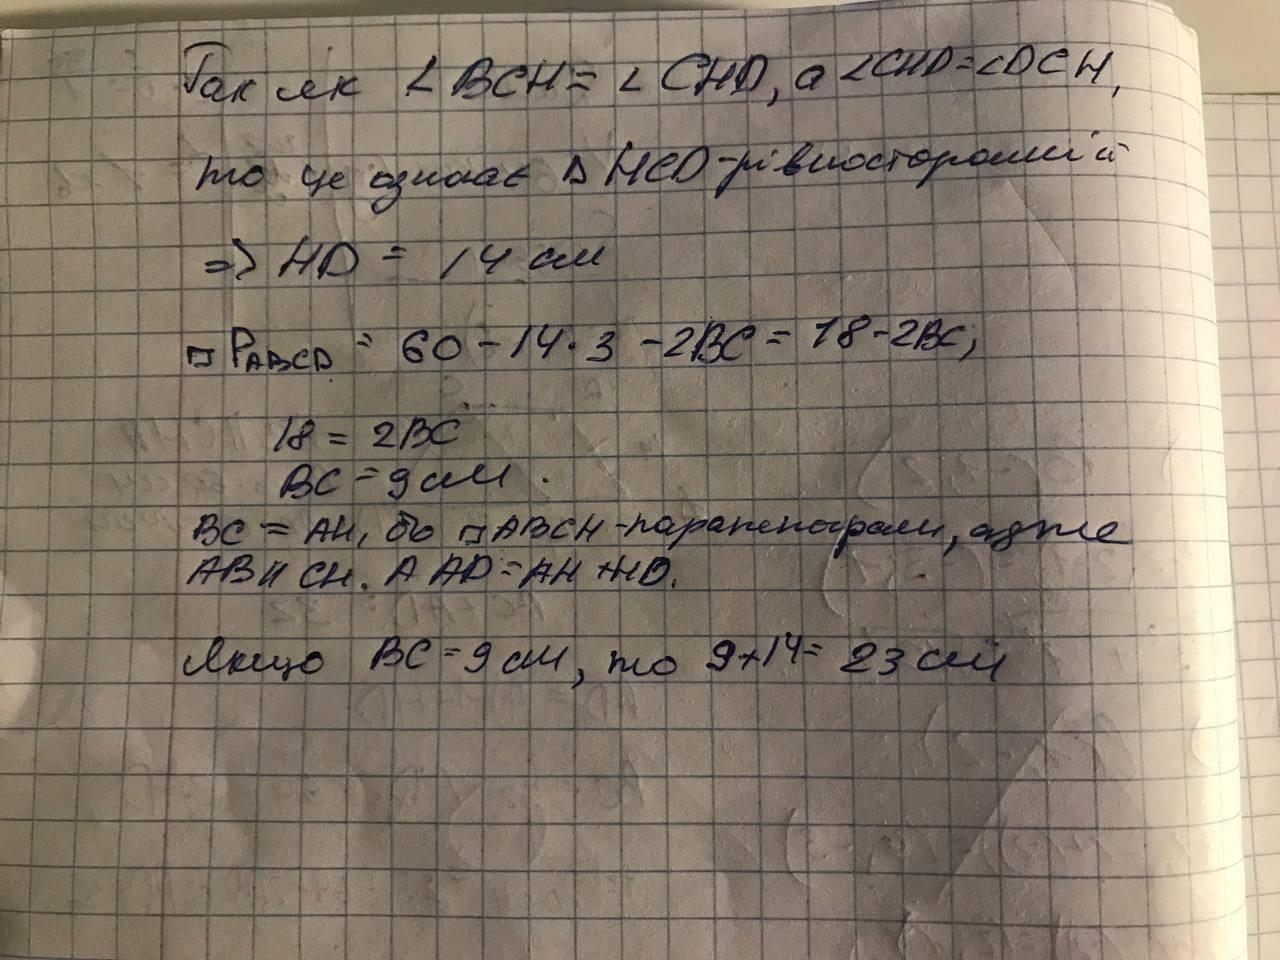 Так як ∠BCH = ∠CHD, а ∠CHD=∠DCH,
то це означає △ HCD-рівносторонній
=> HD = 14 см
▱ PABCD = 60 - 14·3 - 2BC = 18 - 2BC;
18 = 2BC
BC = 9 см.
BC = AH, бо ▱ABCH-паралелограм, адже
AB ∥ CH. А AD=AH+HD.
Якщо BC = 9 см, то 9+14= 23 см